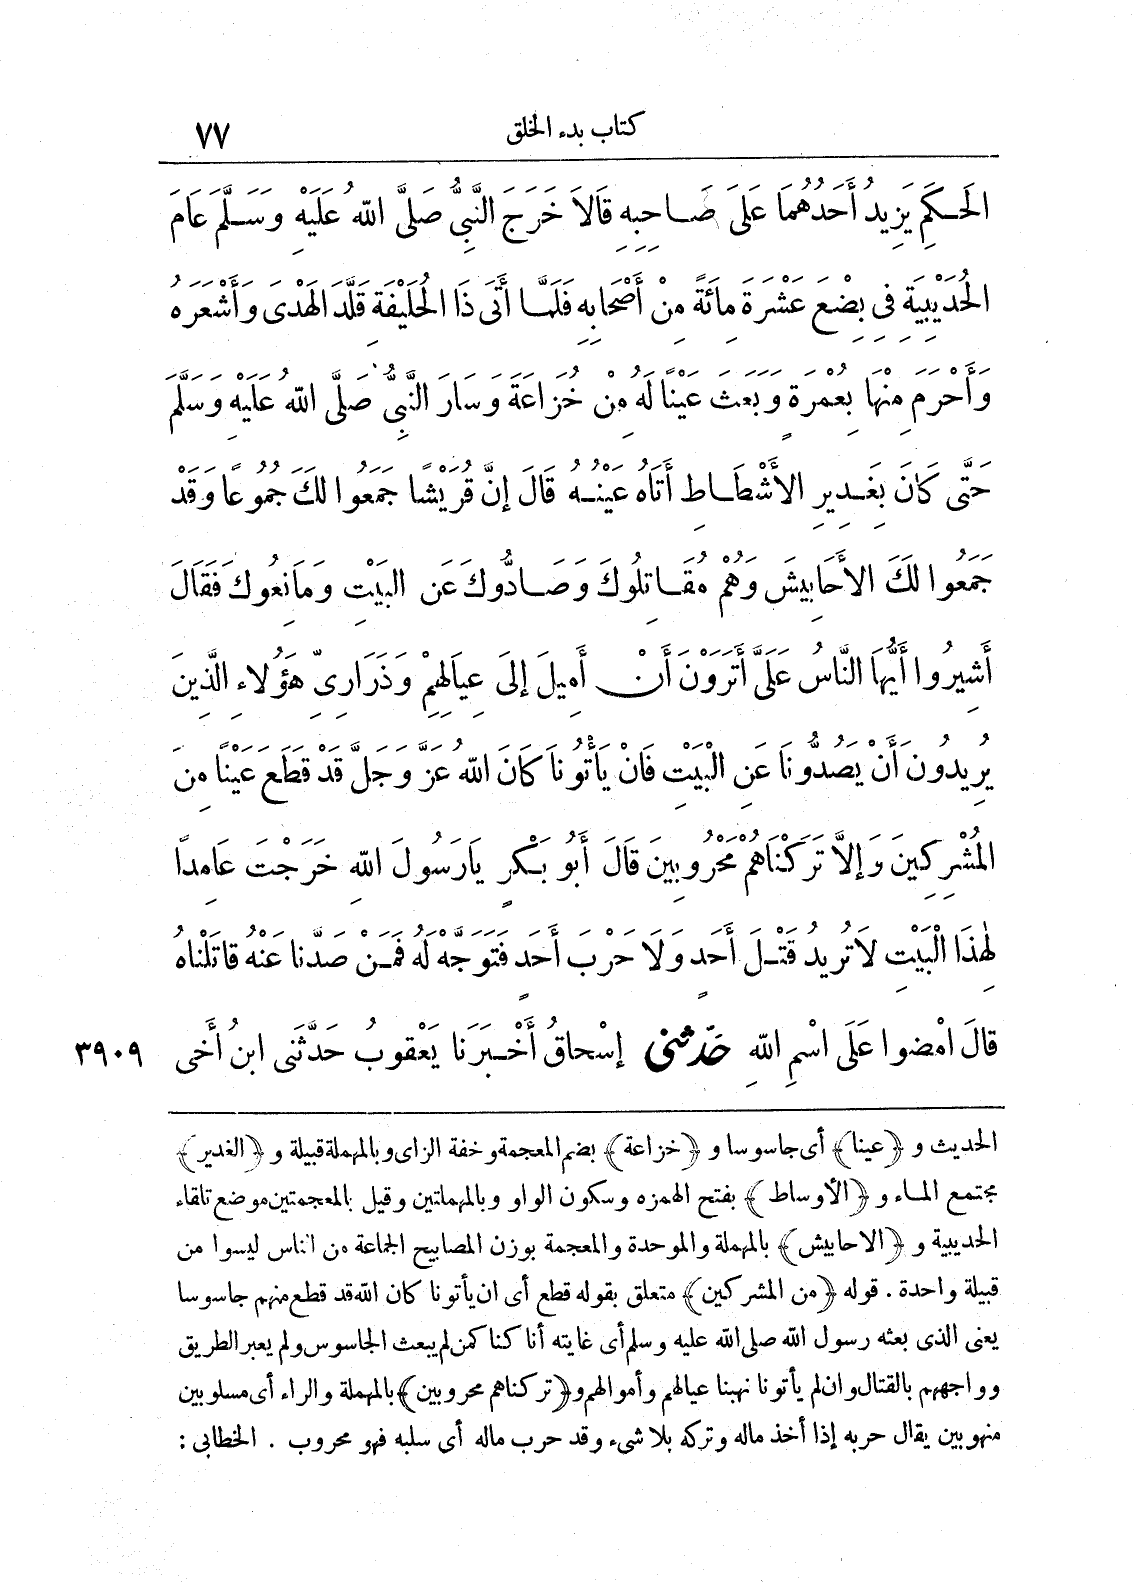 كتاب بدء الخلق ٧٧
الحَكَمِ يَزِيدُ أَحَدُهُمَا عَلَى صَاحِبِهِ قَالَا خَرَجَ النَّبِيُّ صَلَّى اللهُ عَلَيْهِ وَسَلَّمَ عَامَ
الحُدَيْبِيَةِ فِي بِضْعَ عَشْرَةَ مِائَةً مِنْ أَصْحَابِهِ فَلَمَّا أَتَى ذَا الحُلَيْفَةِ قَلَّدَ الهَدْىَ وَأَشْعَرَهُ
وَأَحْرَمَ مِنْهَا بِعُمْرَةٍ وَبَعَثَ عَيْنًا لَهُ مِنْ خُزَاعَةَ وَسَارَ النَّبِيُّ صَلَّى اللهُ عَلَيْهِ وَسَلَّمَ
حَتَّى كَانَ بِغَدِيرِ الأَشْطَاطِ أَتَاهُ عَيْنُهُ قَالَ إِنَّ قُرَيْشًا جَمَعُوا لَكَ جُمُوعًا وَقَدْ
جَمَعُوا لَكَ الأَحَابِيشَ وَهُمْ مُقَاتِلُوكَ وَصَادُّوكَ عَنِ البَيْتِ وَمَانِعُوكَ فَقَالَ
أَشِيرُوا أَيُّهَا النَّاسُ عَلَىَّ أَتَرَوْنَ أَنْ أَمِيلَ إِلَى عِيَالِهِمْ وَذَرَارِىِّ هَؤُلَاءِ الَّذِينَ
يُرِيدُونَ أَنْ يَصُدُّونَا عَنِ الْبَيْتِ فَانْ يَأْتُونَا كَانَ اللهُ عَزَّ وَجَلَّ قَدْ قَطَعَ عَيْنًا مِنَ
المُشْرِكِينَ وَإِلَّا تَرَكْنَاهُمْ مَحْرُوبِينَ قَالَ أَبُو بَكْرٍ يَارَسُولَ اللهِ خَرَجْتَ عَامِدًا
لِهٰذَا الْبَيْتِ لَاتُرِيدُ قَتْلَ أَحَدٍ وَلَا حَرْبَ أَحَدٍ فَتَوَجَّهْ لَهُ فَمَنْ صَدَّنَا عَنْهُ قَاتَلْنَاهُ
قَالَ امْضُوا عَلَى اسْمِ اللهِ حَدَّثَنِى إِسْحَاقُ أَخْبَرَنَا يَعْقُوبُ حَدَّثَنِى ابنُ أَخِى ٣٩٠٩
الحديث و ﴿عينا﴾ أى جاسوسا و ﴿خزاعة﴾ بضم المعجمة وخفة الزاى وبالمهملة قبيلة و ﴿الغدير﴾
مجتمع الماء و ﴿الأوساط﴾ بفتح الهمزه وسكون الواو وبالمهملتين وقيل بالمعجمتين موضع تلقاء
الحديبية و ﴿الاحابيش﴾ بالمهملة والموحدة والمعجمة بوزن المصابيح الجماعة من الناس ليسوا من
قبيلة واحدة . قوله ﴿من المشركين﴾ متعلق بقوله قطع أى ان يأتونا كان الله قد قطع منهم جاسوسا
يعنى الذى بعثه رسول الله صلى الله عليه وسلم أى غايته أنا كنا كمن لم يبعث الجاسوس ولم يعبر الطريق
وواجههم بالقتال وان لم يأتونا نهبنا عيالهم وأموالهم و ﴿تركناهم محروبين﴾ بالمهملة والراء أى مسلوبين
منهوبين يقال حربه إذا أخذ ماله وتركه بلا شىء وقد حرب ماله أى سلبه فهو محروب . الخطابى :